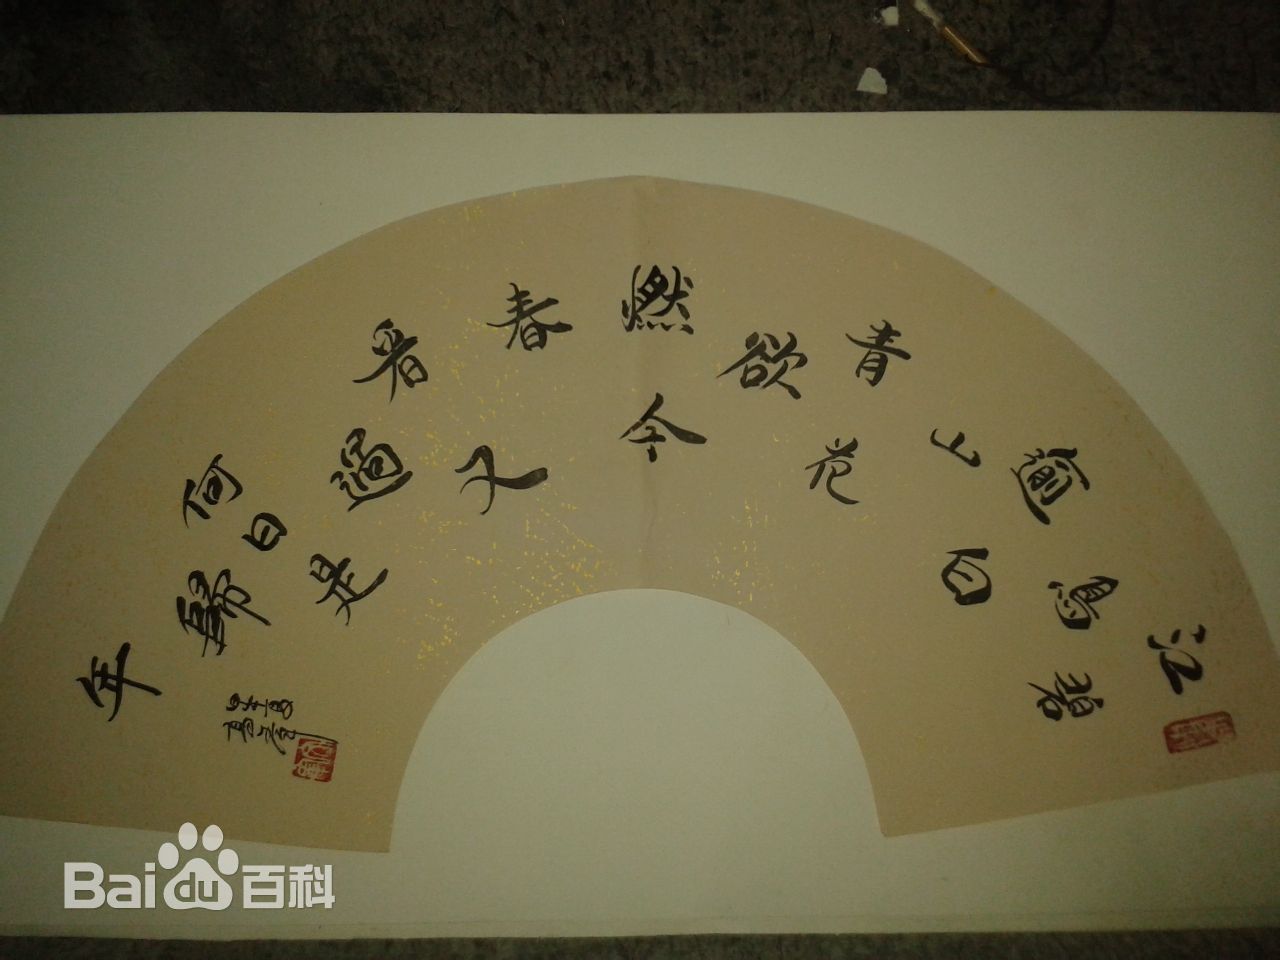 江碧
鳥
逾白
山
青花
欲
燃今
春
看又
過
何日是
歸
年
Baidu百科